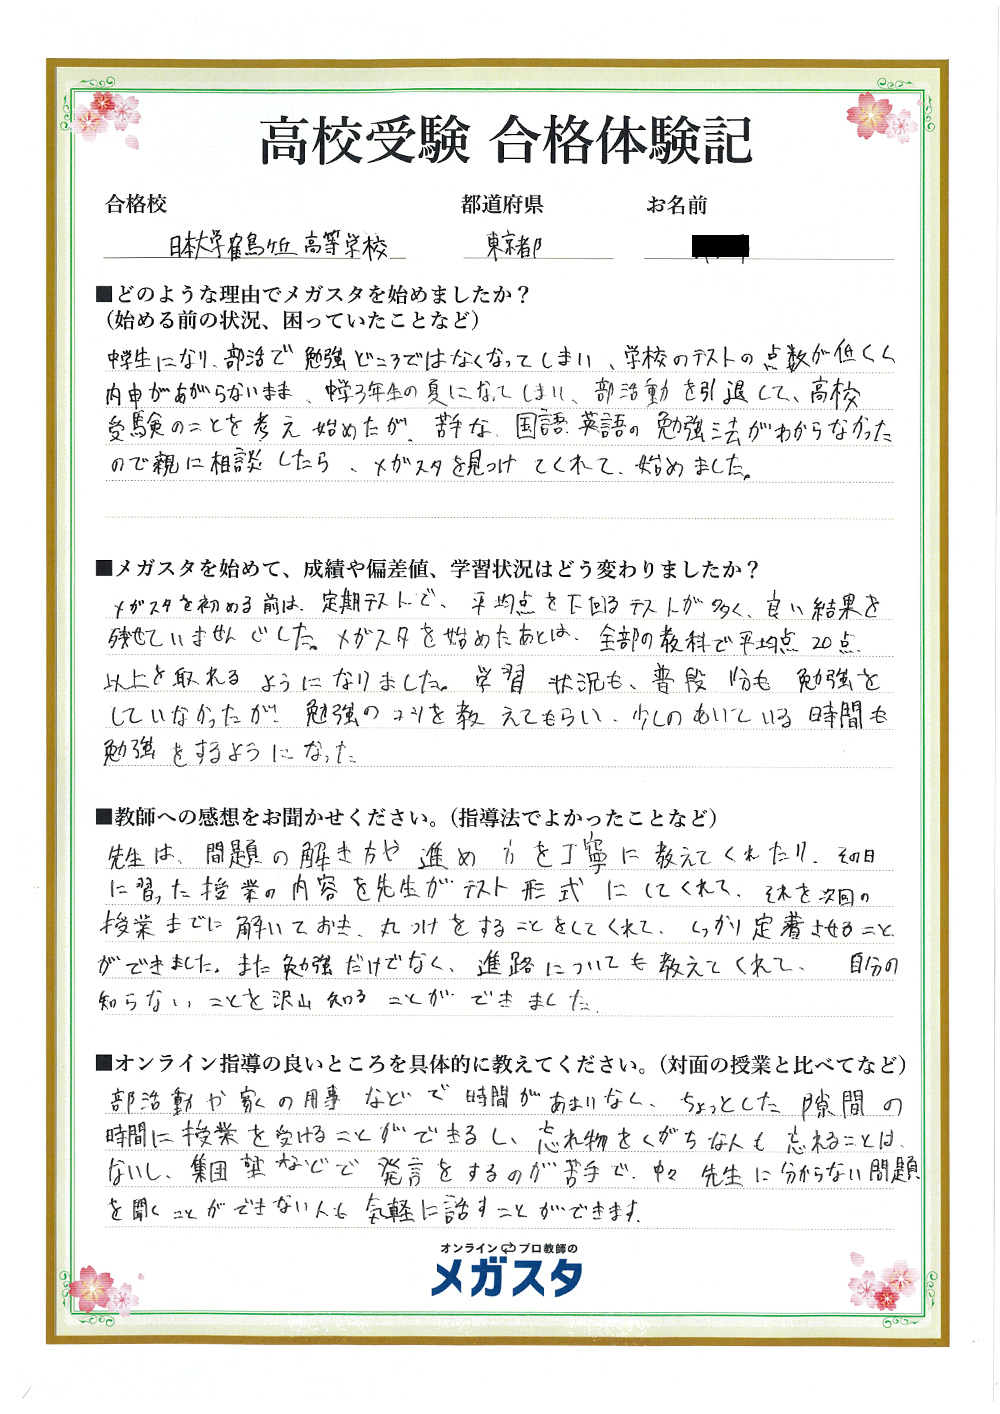 高校受験 合格体験記
合格校 都道府県 お名前
日本大学鶴ヶ丘高等学校 東京都
■どのような理由でメガスタを始めましたか？
（始める前の状況、困っていたことなど）
中学生になり、部活で勉強どころではなくなってしまい、学校のテストの点数が低く
内申があがらないまま、中学3年生の夏になってしまい、部活動を引退して、高校
受験のことを考え始めたが、苦手な国語、英語の勉強法がわからなかった
ので親に相談したら、メガスタを見つけてくれて、始めました。
■メガスタを始めて、成績や偏差値、学習状況はどう変わりましたか？
メガスタを初める前は、定期テストで、平均点を下回るテストが多く、良い結果を
残せていませんでした。メガスタを始めたあとは、全部の教科で平均点20点
以上を取れるようになりました。学習状況も、普段1分も勉強を
していなかったが、勉強のコツを教えてもらい、少しのあいている時間も
勉強をするようになった
■教師への感想をお聞かせください。（指導法でよかったことなど）
先生は、問題の解き方や進め方を丁寧に教えてくれたり、その日
に習った授業の内容を先生がテスト形式にしてくれて、それを次回の
授業までに解いておき、丸つけをすることをしてくれて、しっかり定着させること
ができました。また勉強だけでなく、進路についても教えてくれて、自分の
知らないことを沢山知ることができました。
■オンライン指導の良いところを具体的に教えてください。（対面の授業と比べてなど）
部活動や家の用事などで時間があまりなく、ちょっとした隙間の
時間に授業を受けることができるし、忘れ物をくがちな人も忘れることは、
ないし、集団塾などで発言をするのが苦手で、中々先生に分からない問題
を聞くことができない人も気軽に話すことができます。
オンライン プロ教師の
メガスタ